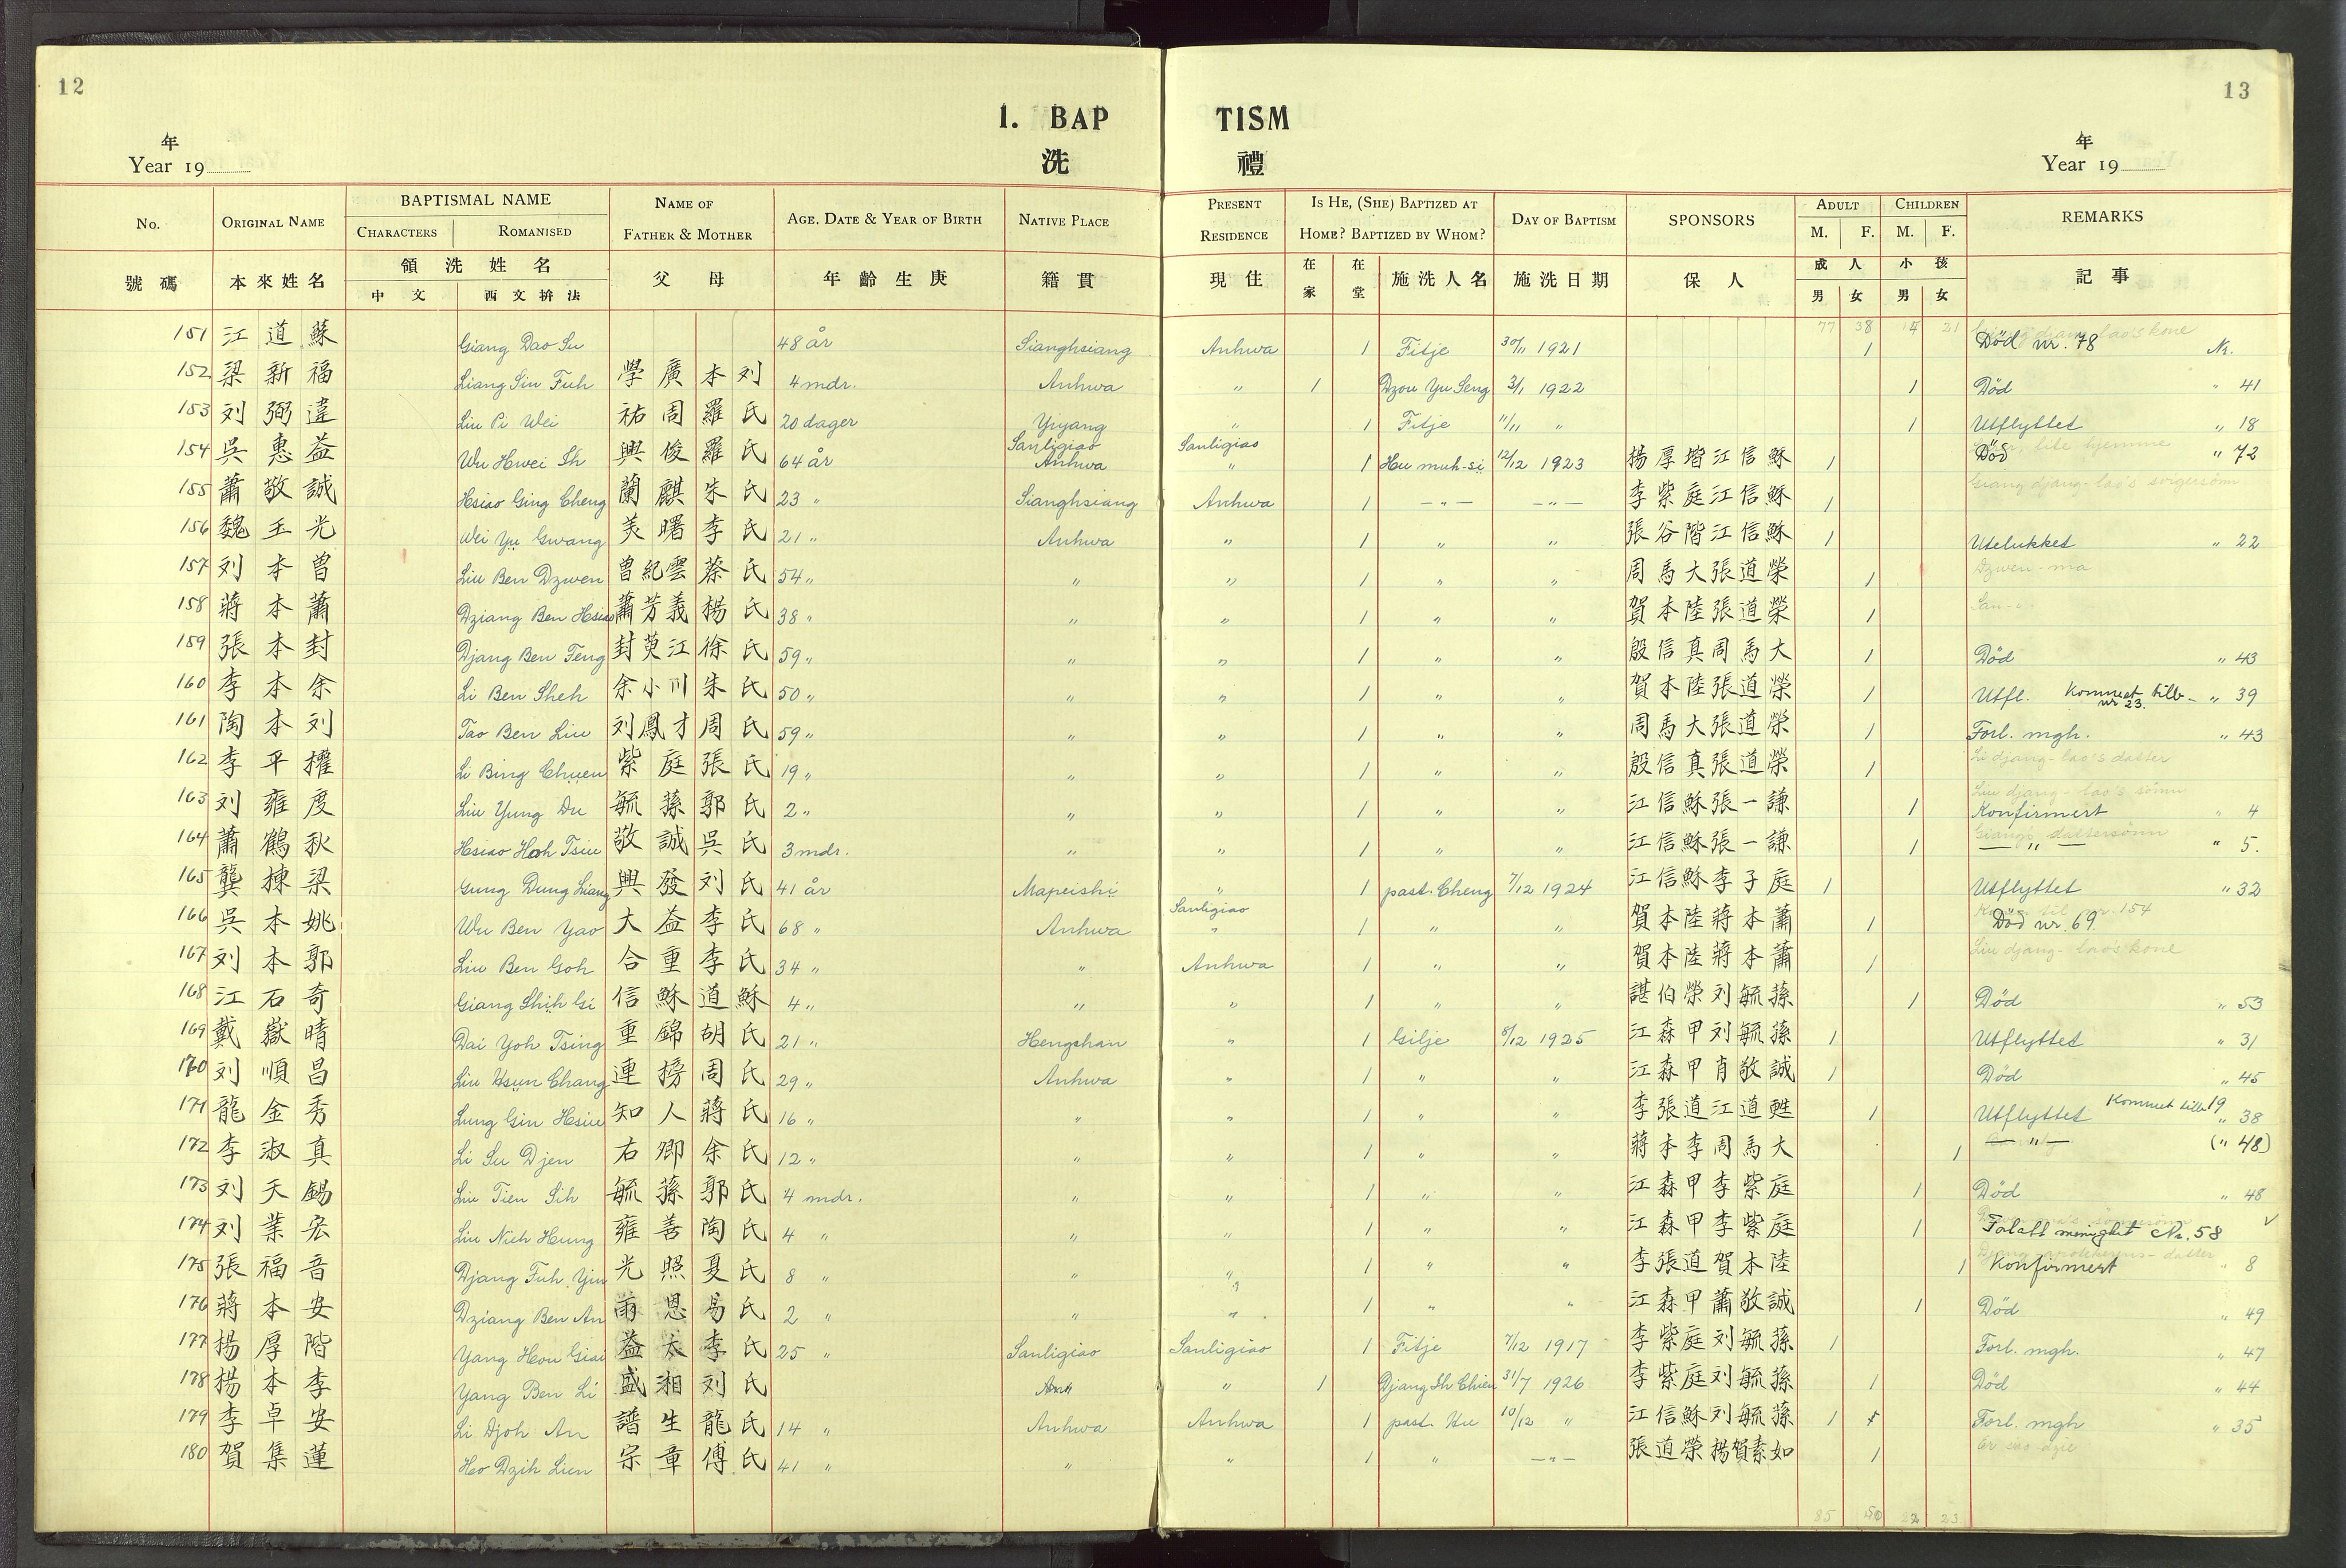 12
13
1. BAP TISM
洗 禮
年
Year 19
年
Year 19
No. ORIGINAL NAME BAPTISMAL NAME NAME OF FATHER & MOTHER AGE. DATE & YEAR OF BIRTH NATIVE PLACE PRESENT RESIDENCE IS HE, (SHE) BAPTIZED AT HOME? BAPTIZED BY WHOM? DAY OF BAPTISM SPONSORS ADULT CHILDREN REMARKS
CHARACTERS ROMANISED M. F. M. F.
號碼 本來姓名 領洗姓名 父母 年齡生庚 籍貫 現住 在家 在堂 施洗人名 施洗日期 保人 成人 小孩 記事
中文 西文拚法 男 女 男 女
77 38 14 21
151 江道蘇 Giang Dao Su 48 år Sianghsiang Anhwa 1 Fitje 30/11 1921 1 Död nr. 78 Nr.
152 梁新福 Liang Sin Fuh 學廣本刘 4 mdr. Anhwa " 1 Dzou Yu Seng 3/1 1922 1 Död " 41
153 刘弼違 Liu Pi Wei 祐周羅氏 20 dager Yiyang " 1 Fitje 11/11 " 1 Utflyttet " 18
154 吳惠益 Wu Hwei Ih 興俊羅氏 64 år Sanligiao Anhwa Sanligiao " 1 Hu muh-si 12/12 1923 楊厚堦江信穌 1 Död " 72
155 蕭敬誠 Hsiao Ging Cheng 蘭麒朱氏 23 " Sianghsiang Anhwa 1 — " — — " — 李紫庭江信穌 1 Giang djang-lao's svigersönn
156 魏玉光 Wei Yu Gwang 美曙李氏 21 " Anhwa " 1 " " 張谷階江信穌 1 Utelukket " 22
157 刘本曾 Liu Ben Dzwen 曾紀雲蔡氏 54 " " " 1 " " 周馬大張道榮 1 Dzwen-ma
158 蔣本蕭 Dziang Ben Hsiao 蕭芳義楊氏 38 " " " 1 " " 賀本陸張道榮 1
159 張本封 Djang Ben Feng 封萸江徐氏 59 " " " 1 " " 殷信真周馬大 1 Död " 43
160 李本余 Li Ben Sheh 余小川朱氏 50 " " " 1 " " 賀本陸張道榮 1 Utfl. Kommet tilb- nr 23. " 39
161 陶本刘 Tao Ben Liu 刘鳳才周氏 59 " " " 1 " " 周馬大張道榮 1 Forl. mgh. " 43
162 李平權 Li Bing Chuen 紫庭張氏 19 " " " 1 " " 殷信真張道榮 1 Li djang-lao's datter
163 刘雍度 Liu Yung Du 毓蓀郭氏 2 " " " 1 " " 江信穌張一謙 1 Liu djang-lao's sönn Konfirmert " 4
164 蕭鶴秋 Hsiao Hoh Tsiu 敬誠吳氏 3 mdr. " " 1 " " 江信穌張一謙 1 Giang's dattersönn — " — " 5.
165 龔棟梁 Gung Dung Liang 興發刘氏 41 år Mapeishi " 1 past. Cheng 7/12 1924 江信穌李子庭 1 Utflyttet " 32
166 吳本姚 Wu Ben Yao 大益李氏 68 " Anhwa Sanligiao " 1 " " 賀本陸蔣本蕭 1 Kone til nr. 154 Död nr. 69
167 刘本郭 Liu Ben Goh 合重李氏 34 " " Anhwa 1 " " 賀本陸蔣本蕭 1 Liu djang-lao's kone
168 江石奇 Giang Shih Gi 信穌道穌 4 " " " 1 " " 諶伯榮刘毓蓀 1 Död " 53
169 戴嶽晴 Dai Yoh Tsing 重錦胡氏 21 " Hengshan " 1 Gilje 8/12 1925 江森甲刘毓蓀 1 Utflyttet " 31
170 刘順昌 Liu Hsun Chang 連榜周氏 29 " Anhwa " 1 " " 江森甲肖敬誠 1 Död " 45
171 龍金秀 Lung Gin Hsiu 知人蔣氏 16 " " " 1 " " 李張道江道甦 1 Utflyttet Kommet tilb 19 " 38
172 李淑真 Li Su Djen 右卿余氏 12 " " " 1 " " 蔣本李周馬大 1 — " — (" 48)
173 刘天錫 Liu Tien Sih 毓蓀郭氏 4 mdr. " " 1 " " 江森甲李紫庭 1 Död " 48
174 刘業宏 Liu Nieh Hung 雍善陶氏 4 " " " 1 " " 江森甲李紫庭 1 Folatt menighet Nr. 58
175 張福音 Djang Fuh Yin 光照夏氏 8 " " " 1 " " 李張道賀本陸 1 Konfirmert " 8
176 蔣本安 Dziang Ben An 雨恩易氏 2 " " " 1 " " 江森甲蕭敬誠 1 Död " 49
177 楊厚階 Yang Hou Giai 益太李氏 25 " Sanligiao Sanligiao 1 Fitje 7/12 1917 李紫庭刘毓蓀 1 Forl. mgh. " 47
178 楊本李 Yang Ben Li 盛湘刘氏 " 1 Djang Ih Chien 31/7 1926 李紫庭刘毓蓀 1 Död " 44
179 李卓安 Li Djoh An 譜生龍氏 14 " Anhwa Anhwa 1 past. Hu 10/12 " 江信穌刘毓蓀 1 Forl. mgh " 35
180 賀集蓮 Ho Dzih Lien 宗章傅氏 41 " " " 1 " — " — 張道榮楊賀素如 1
85 40 22 23